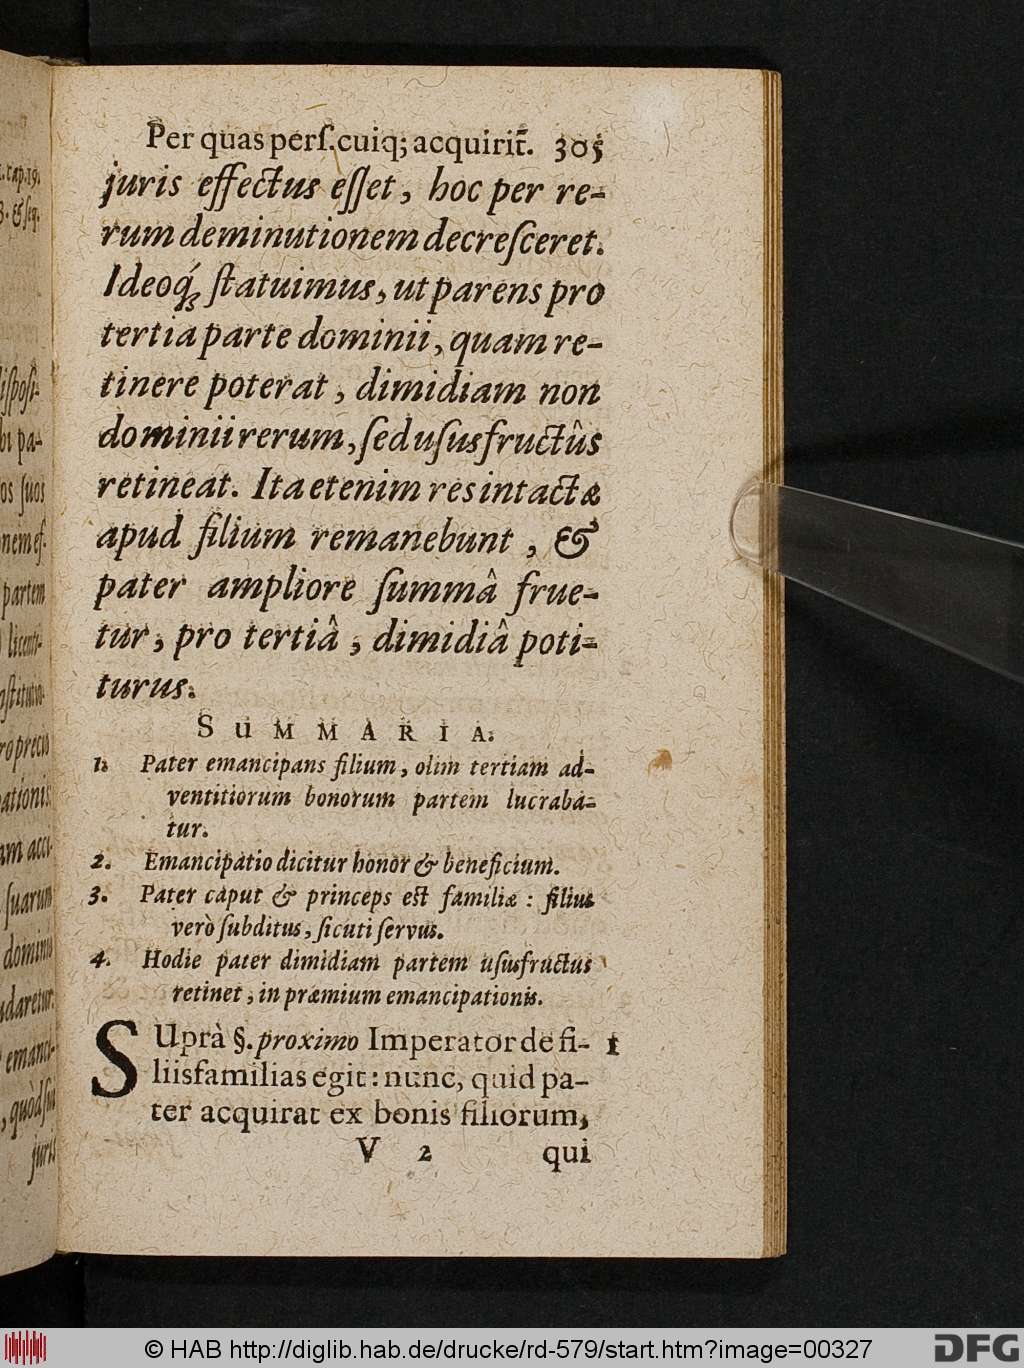 Per quas perſ. cuiq; acquirit̃. 305
juris effectus eſſet, hoc per re-
rum deminutionem decreſceret.
Ideoq́; ſtatuimus, ut parens pro
tertia parte dominii, quam re-
tinere poterat, dimidiam non
dominii rerum, ſed uſusfructûs
retineat. Ita etenim res intactæ
apud filium remanebunt, &
pater ampliore ſummâ frue-
tur, pro tertiâ, dimidiâ poti-
turus.
SUMMARIA.
1. Pater emancipans filium, olim tertiam ad-
ventitiorum bonorum partem lucraba-
tur.
2. Emancipatio dicitur honor & beneficium.
3. Pater caput & princeps eſt familiæ : filius
verò ſubditus, ſicuti ſervus.
4. Hodie pater dimidiam partem uſusfructus
retinet, in præmium emancipationis.
SUprà §. proximo Imperator de fi- 1
liisfamilias egit: nunc, quid pa-
ter acquirat ex bonis filiorum,
V 2 qui
. cap. 19.
3. & ſeq.
diſpoſi-
bi pa-
os ſuos
nem eſ-
partem
licenti-
nſtitutio-
ro precio
pationis
am acci-
ſuarum
dominio
udaretur
emanci-
, quòd ſuu
juris
© HAB http://diglib.hab.de/drucke/rd-579/start.htm?image=00327
DFG